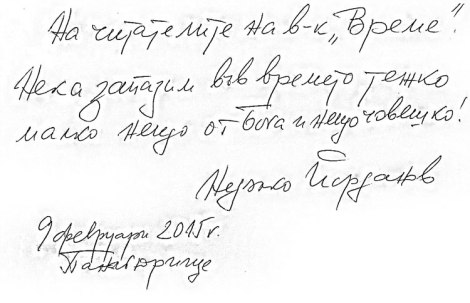 На читателите на в-к „Време“!
Нека запазим във времето тежко
малко нещо от Бога и нещо човешко!
Недялко Йорданов
9 февруари 2015 г.
Панагюрище